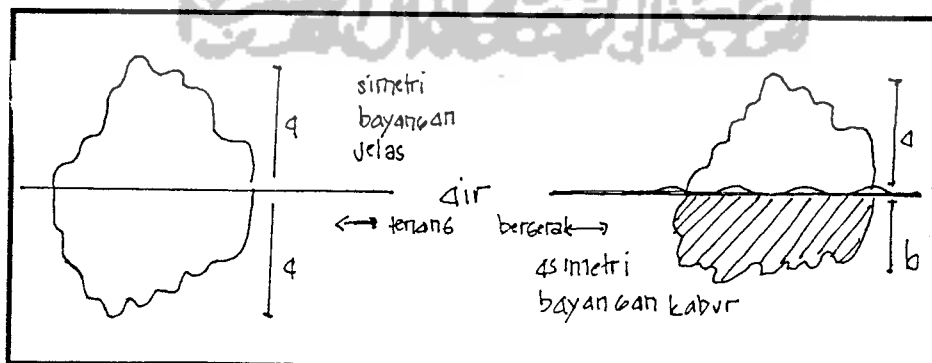 a
simetri
bayangan
jelas
a
air
tenang
bergerak
a
asimetri
bayangan kabur
a
b